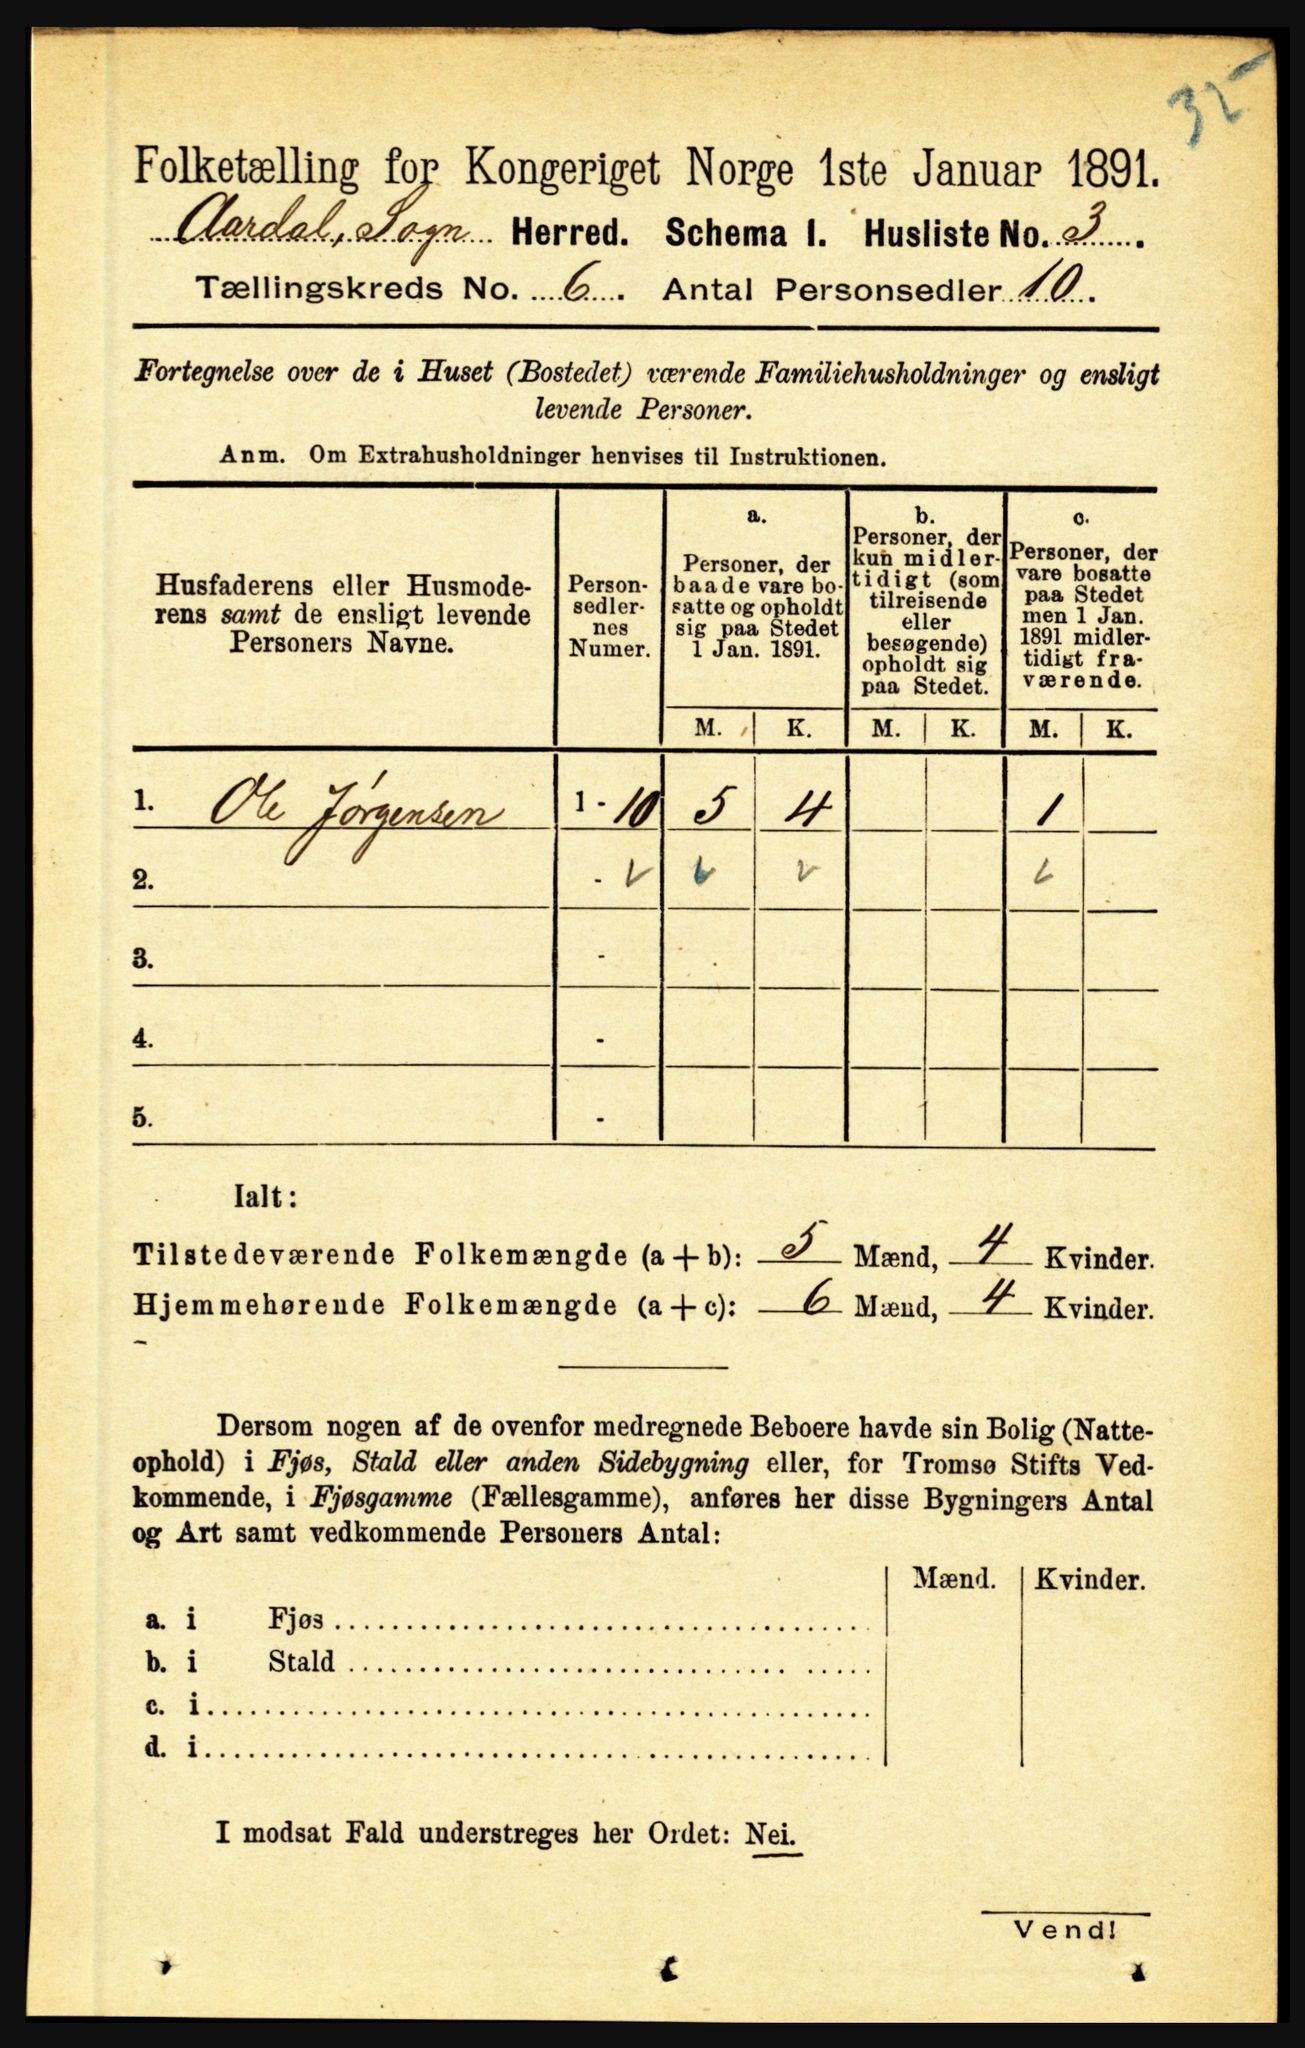 32
Folketælling for Kongeriget Norge 1ste Januar 1891.
Aardal, Sogn Herred. Schema 1. Husliste No. 3.
Tællingskreds No. 6. Antal Personsedler 10.
Fortegnelse over de i Huset (Bostedet) værende Familiehusholdninger og ensligt
levende Personer.
Anm. Om Extrahusholdninger henvises til Instruktionen.
Husfaderens eller Husmode-
rens samt de ensligt levende
Personers Navne.
Person-
sedler-
nes
Numer.
a.
Personer, der
baade vare bo-
satte og opholdt
sig paa Stedet
1 Jan. 1891.
b.
Personer, der
kun midler-
tidigt (som
tilreisende
eller
besøgende)
opholdt sig
paa Stedet.
c.
Personer, der
vare bosatte
paa Stedet
men 1 Jan.
1891 midler-
tidigt fra-
værende.
M. K. M. K. M. K.
1. Ole Jørgensen 1 - 10 5 4 1
2. -
3. -
4. -
5. -
Ialt:
Tilstedeværende Folkemængde (a + b): 5 Mænd, 4 Kvinder.
Hjemmehørende Folkemængde (a + c): 6 Mænd, 4 Kvinder.
Dersom nogen af de ovenfor medregnede Beboere havde sin Bolig (Natte-
ophold) i Fjøs, Stald eller anden Sidebygning eller, for Tromsø Stifts Ved-
kommende, i Fjøsgamme (Fællesgamme), anføres her disse Bygningers Antal
og Art samt vedkommende Personers Antal:
Mænd. Kvinder.
a. i Fjøs
b. i Stald
c. i
d. i
I modsat Fald understreges her Ordet: Nei.
Vend!